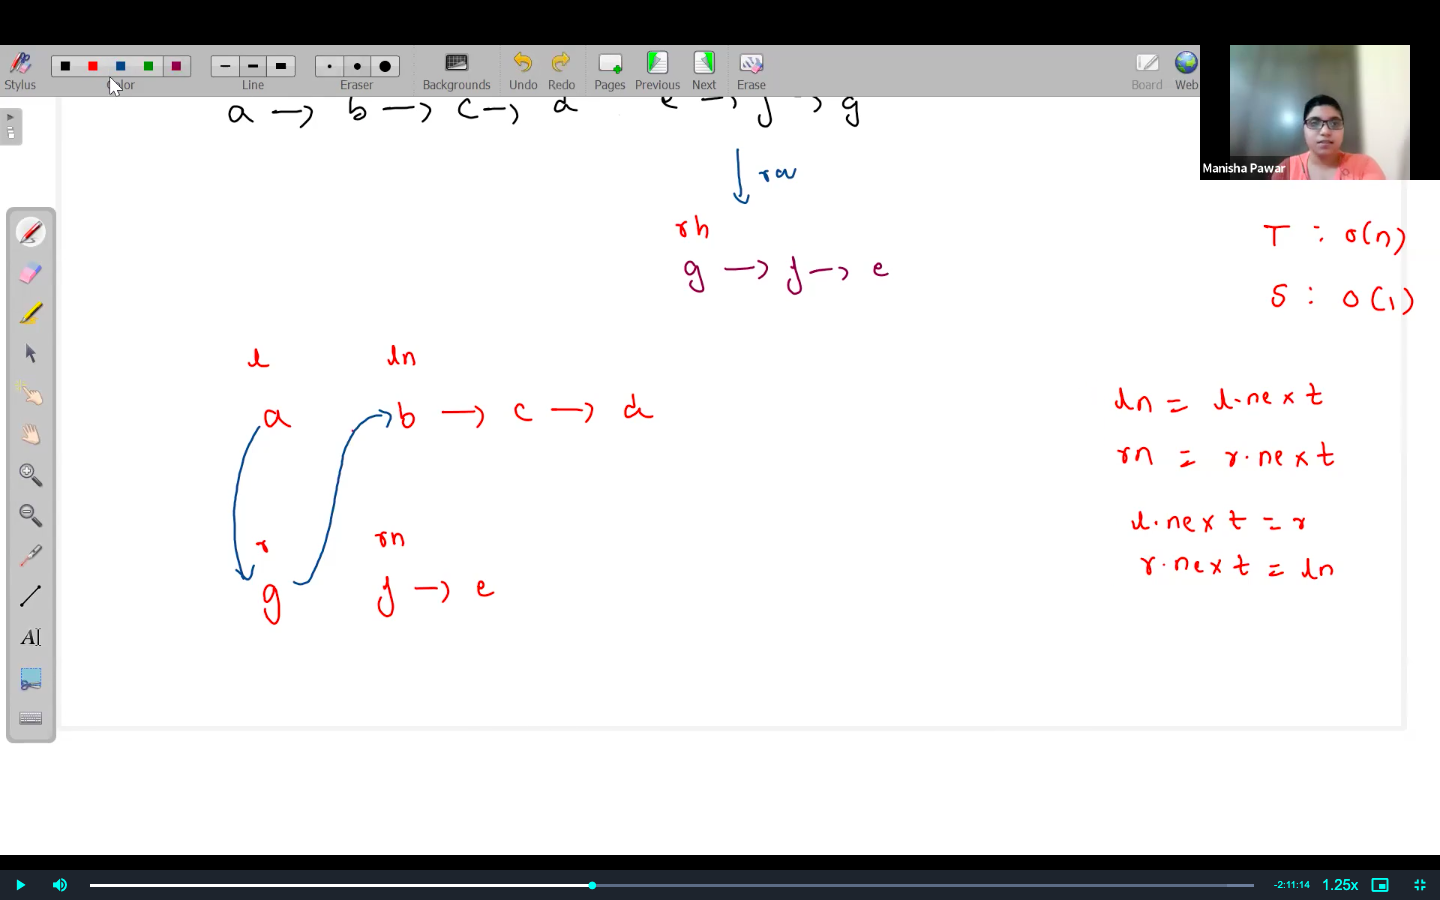 Stylus Color Line Eraser Backgrounds Undo Redo Pages Previous Next Erase Board Web
Manisha Pawar
a → b → c → d e → f → g
rh
g → f → e
T : O(n)
S : O(1)
l ln
a b → c → d
r rn
g f → e
ln = l.next
rn = r.next
l.next = r
r.next = ln
-2:11:14 1.25x